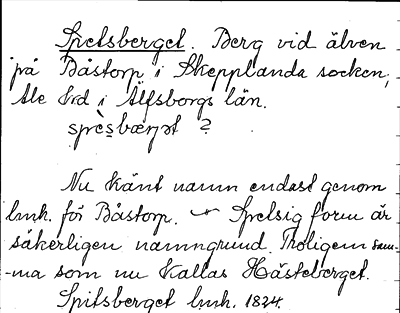 Spetsberget. Berg vid älven
på Båstorp i Skepplanda socken,
Ale hrd i Älfsborgs län.
?
Nu känt namn endast genom
lmk. för Båstorp. Spetsig form är
säkerligen namngrund. Troligen sam-
-ma som nu kallas Hästeberget.
Spitsberget lmk. 1824.